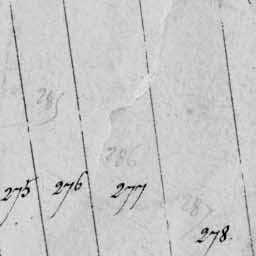 285
286
275 276 277
287
278.